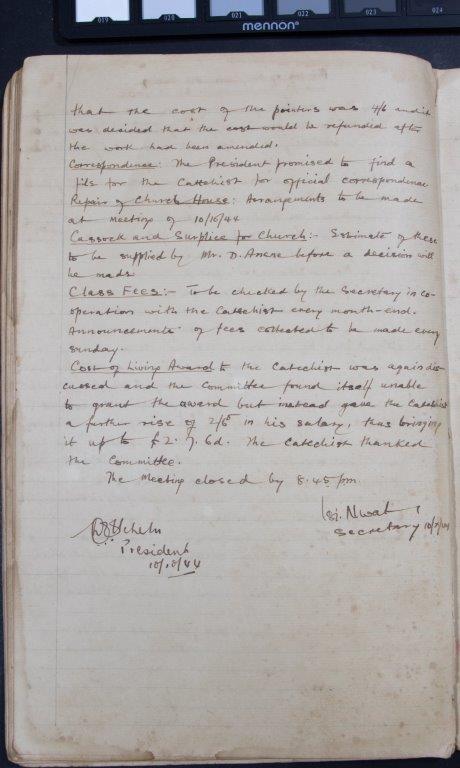 019 020 021 022 023 024
mennon
that the cost of the pointers was 4/6 and it
was decided that the cost would be refunded after
the work had been amended.
Correspondence: The President promised to find a
file for the Catechist for official correspondence
Repair of Church House: Arrangements to be made
at Meeting of 10/10/44
Cassock and Surplice for Church:- Estimate of these
to be supplied by Mr. D. before a decision will
be made
Class Fees:- To be checked by the Secretary in co-
operation with the Catechist every month-end.
Announcements of fees collected to be made every
Sunday.
Cost of Living Award to the Catechist was again dis
cussed and the Committee found itself unable
to grant the award but instead gave the Catechist
a further rise of 2/6 in his salary, thus bringing
it up to £2. 7. 6d. The Catechist thanked
the Committee.
The Meeting closed by 8.45 pm.
Nwat
Secretary
President
10/10/44